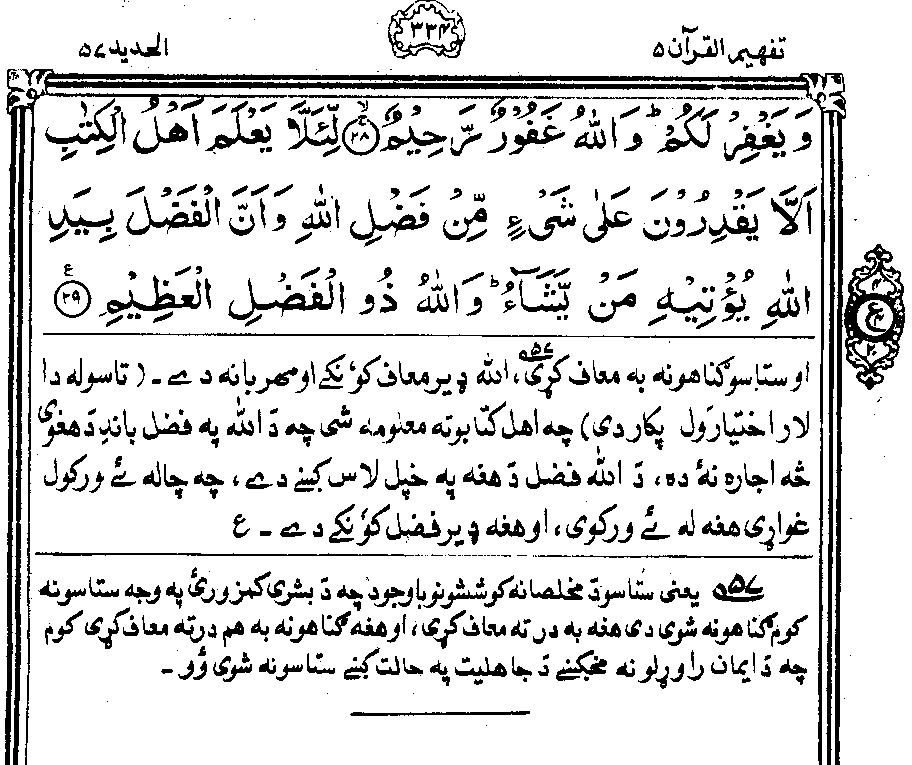 تفهیم القرآن ۵
۳۳۴
الحدید ۵۷
وَ يَغْفِرْ لَكُمْ ؕ وَ اللّٰهُ غَفُوْرٌ رَّحِيْمٌ ۙ ﴿۲۸﴾ لِّئَلَّا يَعْلَمَ اَهْلُ الْكِتٰبِ
اَلَّا يَقْدِرُوْنَ عَلٰى شَىْءٍ مِّنْ فَضْلِ اللّٰهِ وَ اَنَّ الْفَضْلَ بِيَدِ
اللّٰهِ يُؤْتِيْهِ مَنْ يَّشَآءُ ؕ وَ اللّٰهُ ذُو الْفَضْلِ الْعَظِيْمِ ﴿۲۹﴾ ع
او ستاسو ګناهونه به معاف کړی،۵۶ الله ډیر معاف کوُنکے او مهربانه دے۔ (تاسو له دا
لار اختیارَول پکار دی) چه اهل کتابو ته معلومه شی چه دَ الله په فضل باندِ دَ هغوی
څه اجاره نهٔ ده، دَ الله فضل دَ هغه په خپل لاس کښے دے، چه چاله ئے ورکول
غواړی هغه له ئے ورکوی، او هغه ډیر فضل کوُنکے دے۔ ع
۵۶ یعنی ستاسو دَ مخلصانه کوششونو باوجود چه دَ بشری کمزورئ په وجه ستاسو نه
کوم ګناهونه شوی دی هغه به در ته معاف کړی، او هغه ګناهونه به هم درته معاف کړی کوم
چه دَ ایمان راوړلو نه مخکښے دَ جاهلیت په حالت کښے ستاسو نه شوی وُو۔